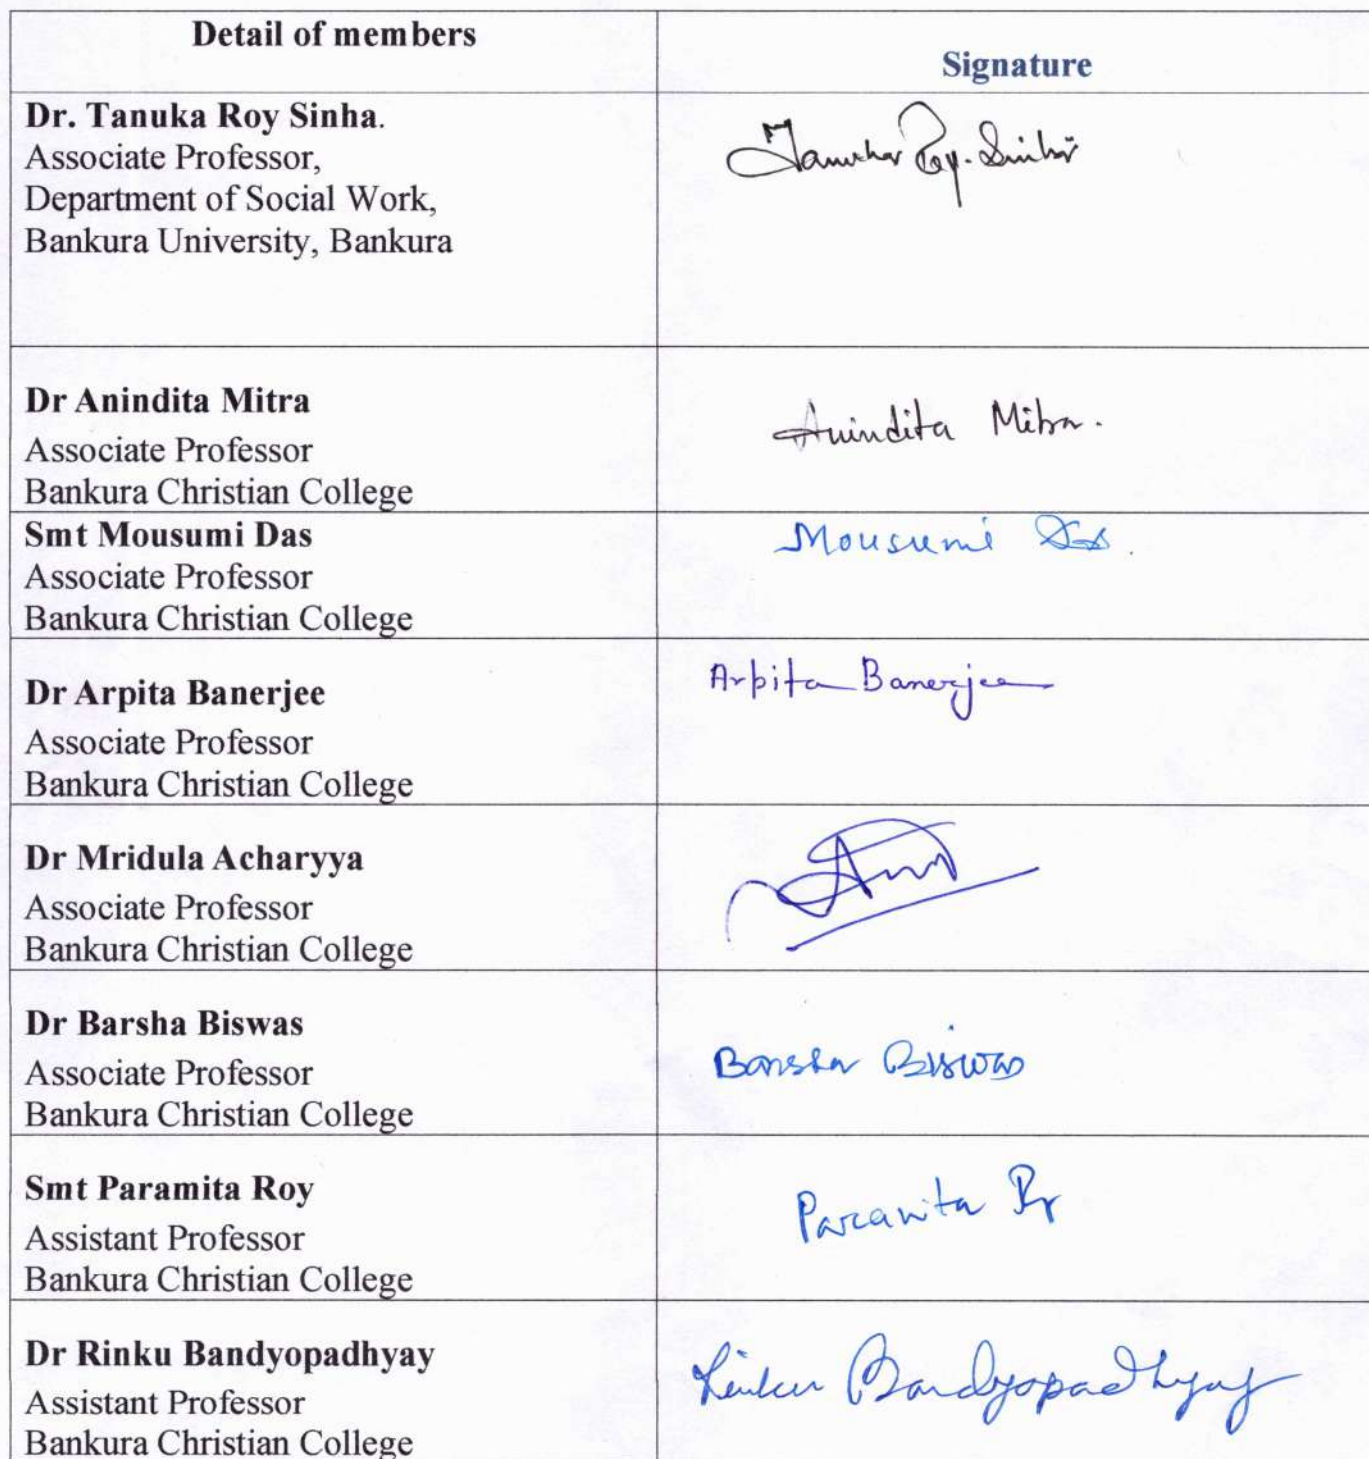 Detail of members
Signature
Dr. Tanuka Roy Sinha.
Associate Professor,
Department of Social Work,
Bankura University, Bankura
Tanuka Roy. Sinha
Dr Anindita Mitra
Associate Professor
Bankura Christian College
Anindita Mitra.
Smt Mousumi Das
Associate Professor
Bankura Christian College
Mousumi Das.
Dr Arpita Banerjee
Associate Professor
Bankura Christian College
Arpita Banerjee
Dr Mridula Acharyya
Associate Professor
Bankura Christian College
Dr Barsha Biswas
Associate Professor
Bankura Christian College
Barsha Biswas
Smt Paramita Roy
Assistant Professor
Bankura Christian College
Paramita Roy
Dr Rinku Bandyopadhyay
Assistant Professor
Bankura Christian College
Rinku Bandyopadhyay